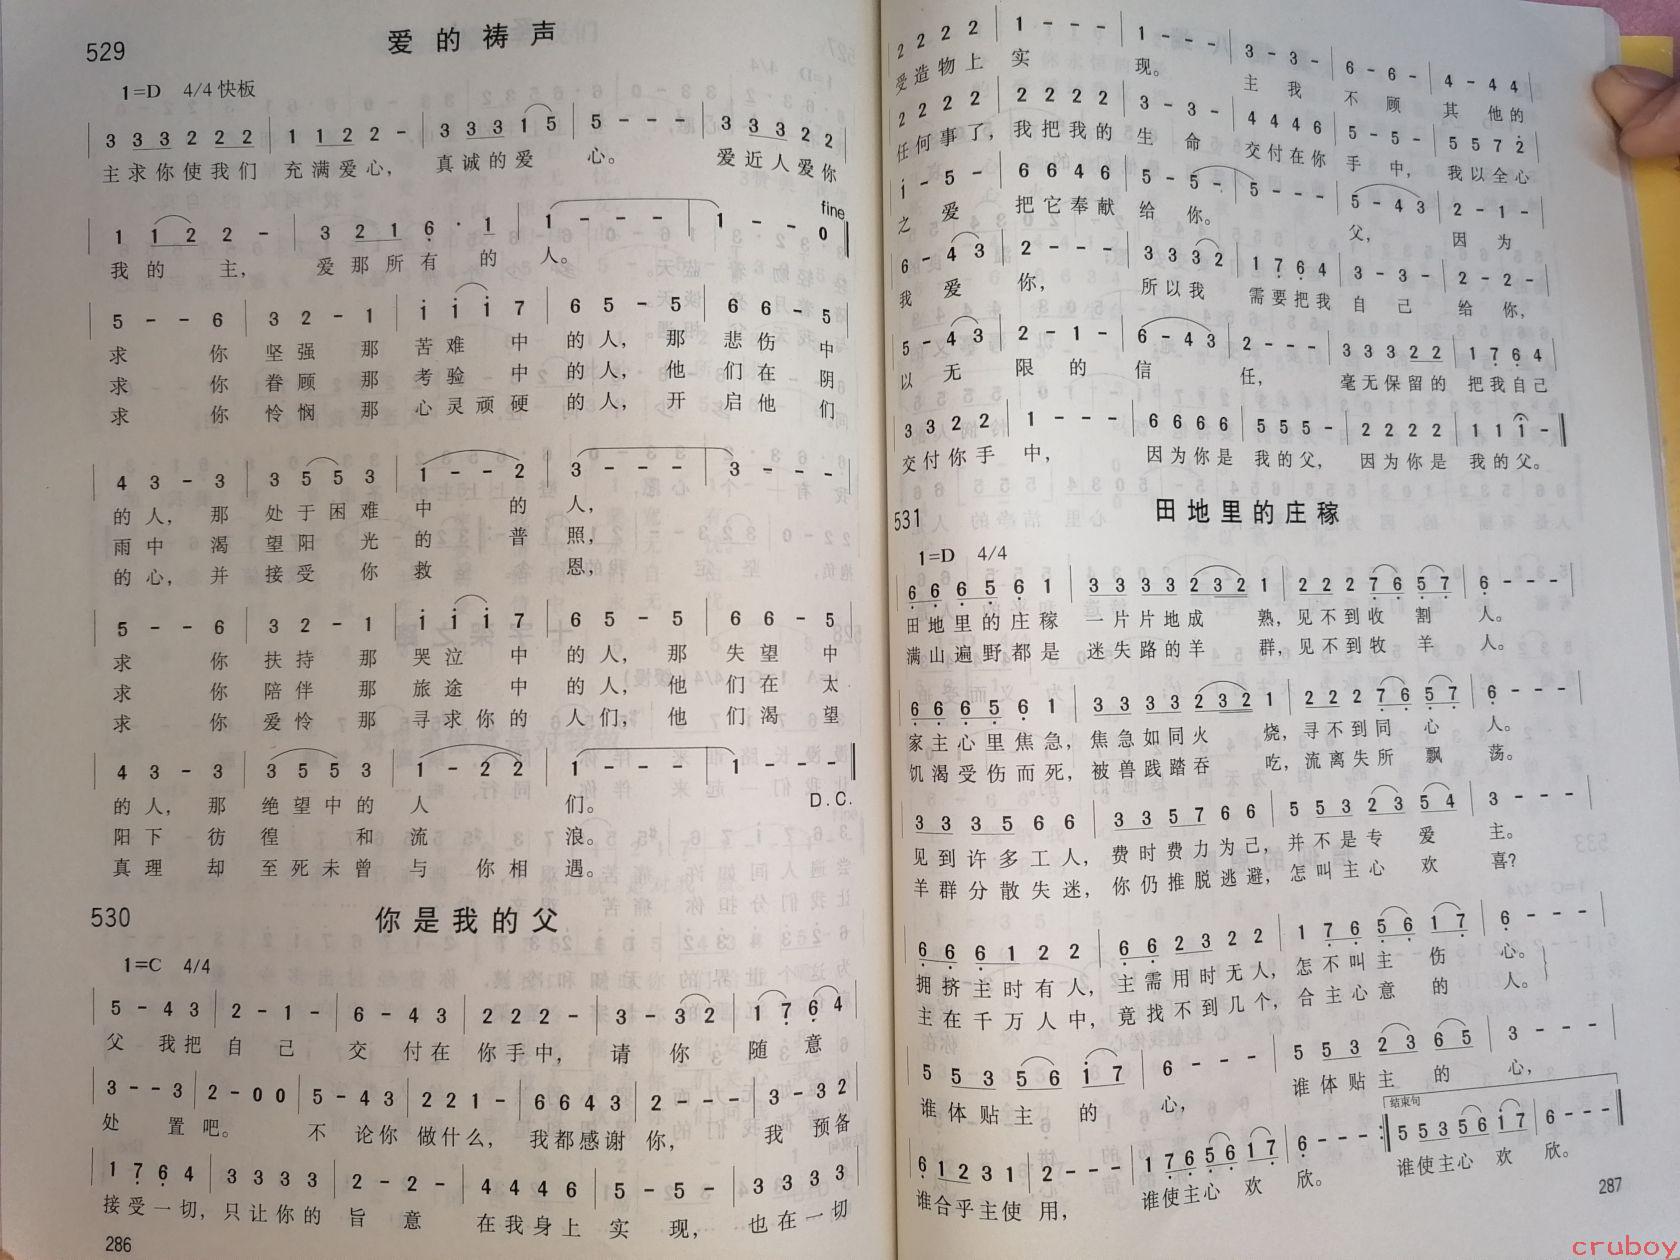 529
爱的祷声
1=D 4/4 快板
3 3 3 2 2 2 | 1 1 2 2 - | 3 3 3 1 5 | 5 - - - | 3 3 3 2 2
主求你使我们 充满爱心, 真诚的爱 心。 爱近人爱你
fine
1 1 2 2 - | 3 2 1 6 · 1 | 1 - - - | 1 - - 0
我的 主, 爱那所有的 人。
5 - - 6 | 3 2 - 1 | i i i 7 | 6 5 - 5 | 6 6 - 5
求 你 坚强 那 苦难 中 的人, 那 悲伤 中
求 你 眷顾 那 考验 中 的人, 他 们在 阴
求 你 怜悯 那 心灵顽硬 的人, 开 启他 们
4 3 - 3 | 3 5 5 3 | 1 - - 2 | 3 - - - | 3 - - -
的人, 那 处于困难 中 的 人,
雨中 渴 望阳 光 的 普 照,
的心, 并 接受 你 救 恩,
5 - - 6 | 3 2 - 1 | i i i 7 | 6 5 - 5 | 6 6 - 5
求 你 扶持 那 哭泣 中 的人, 那 失望 中
求 你 陪伴 那 旅途 中 的人, 他 们在 太
求 你 爱怜 那 寻求你的 人们, 他 们渴 望
4 3 - 3 | 3 5 5 3 | 1 - 2 2 | 1 - - - | 1 - - -
的人, 那 绝望中的 人 们。 D.C.
阳下 彷 徨 和 流 浪。
真理 却 至死未曾 与 你相 遇。
530
你是我的父
1=C 4/4
5 - 4 3 | 2 - 1 - | 6 - 4 3 | 2 2 2 - | 3 - 3 2 | 1 7 6 4
父 我把 自 己 交 付在 你手中, 请 你 随 意
3 - - 3 | 2 - 0 0 | 5 - 4 3 | 2 2 1 - | 6 6 4 3 | 2 - - - | 3 - 3 2
处 置 吧。 不 论你 做什么, 我都感谢 你, 我 预备
1 7 6 4 | 3 3 3 3 | 2 - 2 - | 4 4 4 6 | 5 - 5 - | 3 3 3 3
接受一切, 只让你的 旨 意 在我身上 实 现, 也在一切
286
2 2 2 2 | 1 - - - | 1 - - - | 3 - 3 - | 6 - 6 - | 4 - 4 4
受造物上 实 现。 主 我 不 顾 其 他的
2 2 2 2 | 2 2 2 2 | 3 - 3 - | 4 4 4 6 | 5 - 5 - | 5 5 7 2
任何事了, 我把我的 生 命 交付在你 手 中, 我以全心
i - 5 - | 6 6 4 6 | 5 - 5 - | 5 - - - | 5 - 4 3 | 2 - 1 -
之 爱 把它奉献 给 你。 父, 因 为
6 - 4 3 | 2 - - - | 3 3 3 2 | 1 7 6 4 | 3 - 3 - | 2 - 2 -
我 爱 你, 所以我 需要把我 自 己 给 你,
5 - 4 3 | 2 - 1 - | 6 - 4 3 | 2 - - - | 3 3 3 2 2 | 1 7 6 4
以 无 限 的 信 任, 毫无保留的 把我自己
3 3 2 2 | 1 - - - | 6 6 6 6 | 5 5 5 - | 2 2 2 2 | 1 1 i -
交付你手 中, 因为你是 我的父, 因为你是 我的父。
531
田地里的庄稼
1=D 4/4
6 6 6 5 6 1 | 3 3 3 3 2 3 2 1 | 2 2 2 7 6 5 7 | 6 - - -
田地里的庄稼 一片片地成 熟, 见不到收 割 人。
满山遍野都是 迷失路的羊 群, 见不到牧 羊 人。
6 6 6 5 6 1 | 3 3 3 3 2 3 2 1 | 2 2 2 7 6 5 7 | 6 - - -
家主心里焦急, 焦急如同火 烧, 寻不到同 心 人。
饥渴受伤而死, 被兽践踏吞 吃, 流离失所 飘 荡。
3 3 3 5 6 6 | 3 3 5 7 6 6 | 5 5 3 2 3 5 4 | 3 - - -
见到许多工人, 费时费力为己, 并不是专 爱 主。
羊群分散失迷, 你仍推脱逃避, 怎叫主心 欢 喜?
6 6 6 1 2 2 | 6 6 2 3 2 2 | 1 7 6 5 6 1 7 | 6 - - -
拥挤主时有人, 主需用时无人, 怎不叫主 伤 心。
主在千万人中, 竟找不到几个, 合主心意 的 人。
5 5 3 5 6 i 7 | 6 - - - | 5 5 3 2 3 6 5 | 3 - - -
谁体贴主 的 心, 谁体贴主 的 心,
结束句
6 1 2 3 1 | 2 - - - | 1 7 6 5 6 1 7 | 6 - - - :‖ 5 5 3 5 6 i 7 | 6 - - -
谁合乎主使 用, 谁使主心 欢 欣。 谁使主心 欢 欣。
287
cruboy